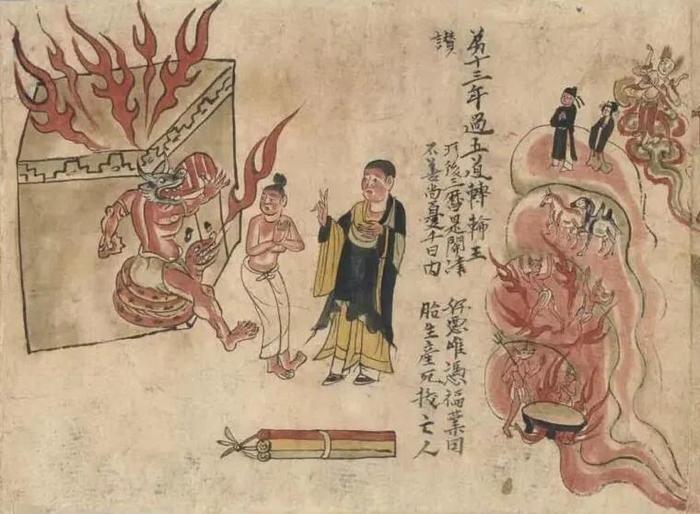 苐十三年過五道轉輪王
讃
所後三曆是關津
好惡唯憑福業因
不善尚憂千日内
胎生産死拔亡人